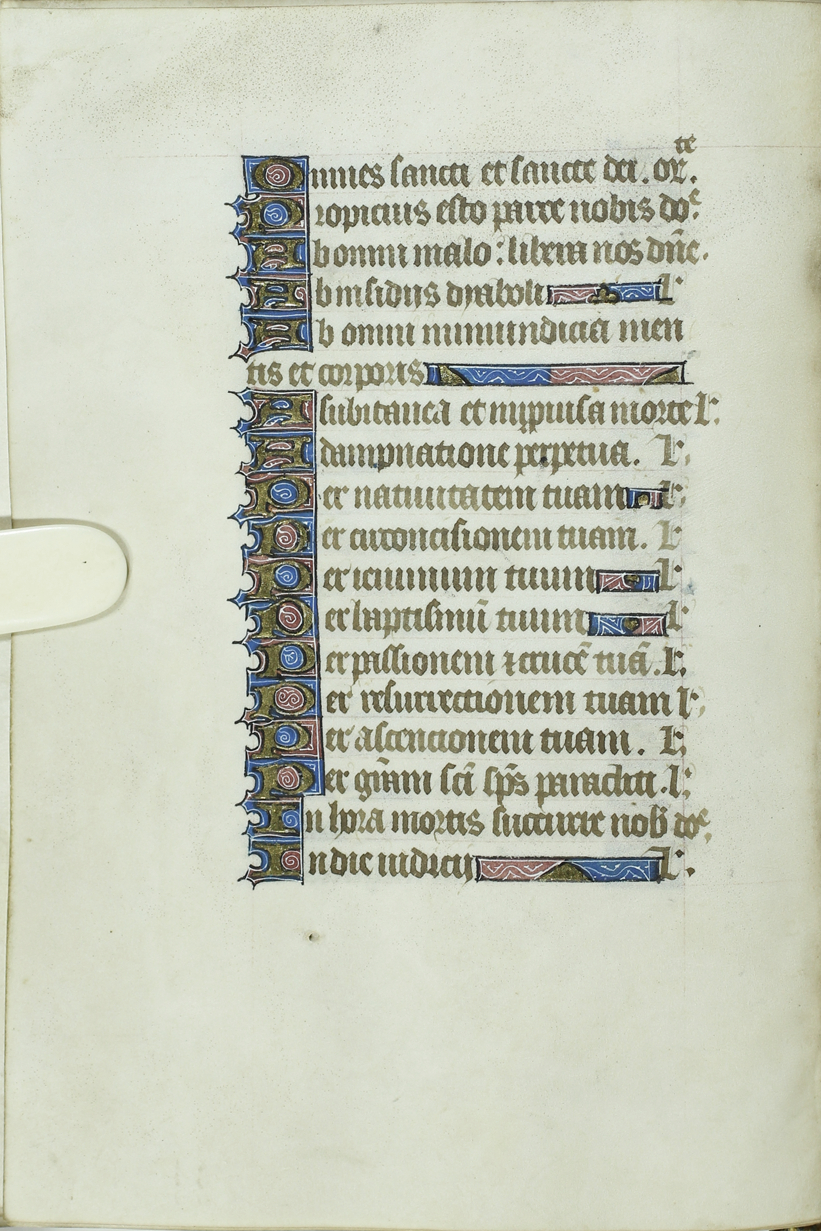 Omnes sancti et sancte dei. or̃te
Propicius esto parce nobis do^e.
Ab omni malo: libera nos dñe.
Ab insidiis dyaboli l'
Ab omni inmundicia men
tis et corporis
A subitanea et inprouisa morte l'.
A dampnatione perpetua. l'.
Per natiuitatem tuam l'.
Per circoncisionem tuam. l'
Per ieiunium tuum l'
Per baptismũ tuum l'
Per passionem ⁊ crucẽ tuã. l'.
Per resurrectionem tuam l'.
Per ascencionem tuam. l'.
Per grãm sc̃i sp̃s paracliti. l'.
In hora mortis succurre nob̃ do^e.
In die iudicij l'.